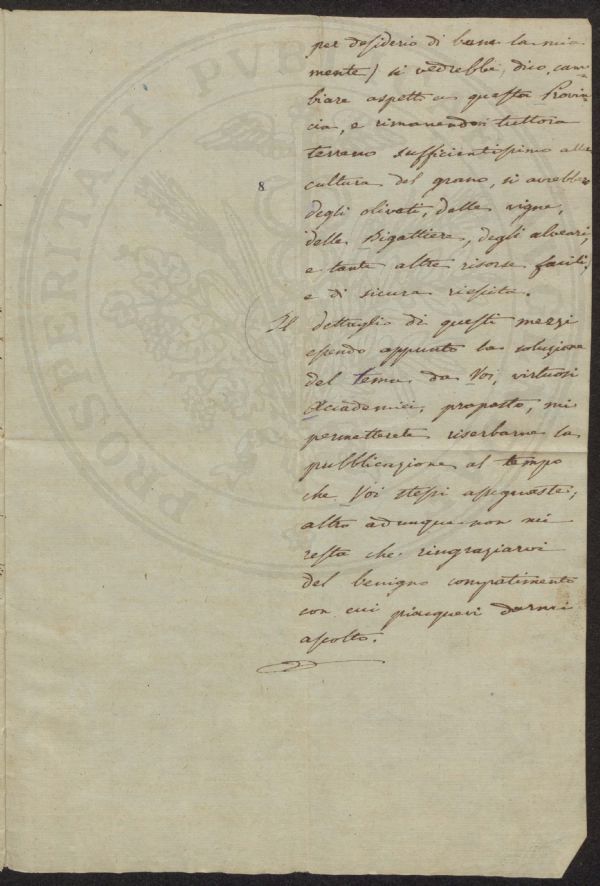 per desiderio di bene la mia
mente) si vedrebbe, dico, cam=
biare aspetto a questa Provin=
cia, e rimanendovi tuttora
terreno sufficientissimo alla
8
cultura del grano, si avrebbero
degli oliveti, delle vigne,
delle Bigattiere, degli alveari,
e tante altre risorse facili,
e di sicura riescita.
Il dettaglio di questi mezzi
essendo appunto la soluzione
del tema da Voi, virtuosi
Accademici, proposto, mi
permetterete riserbarne la
pubblicazione al tempo
che Voi stessi assegnaste;
altro adunque non mi
resta che ringraziarvi
del benigno compatimento
con cui piacquevi darmi
ascolto.
PROSPERITATI PVBL